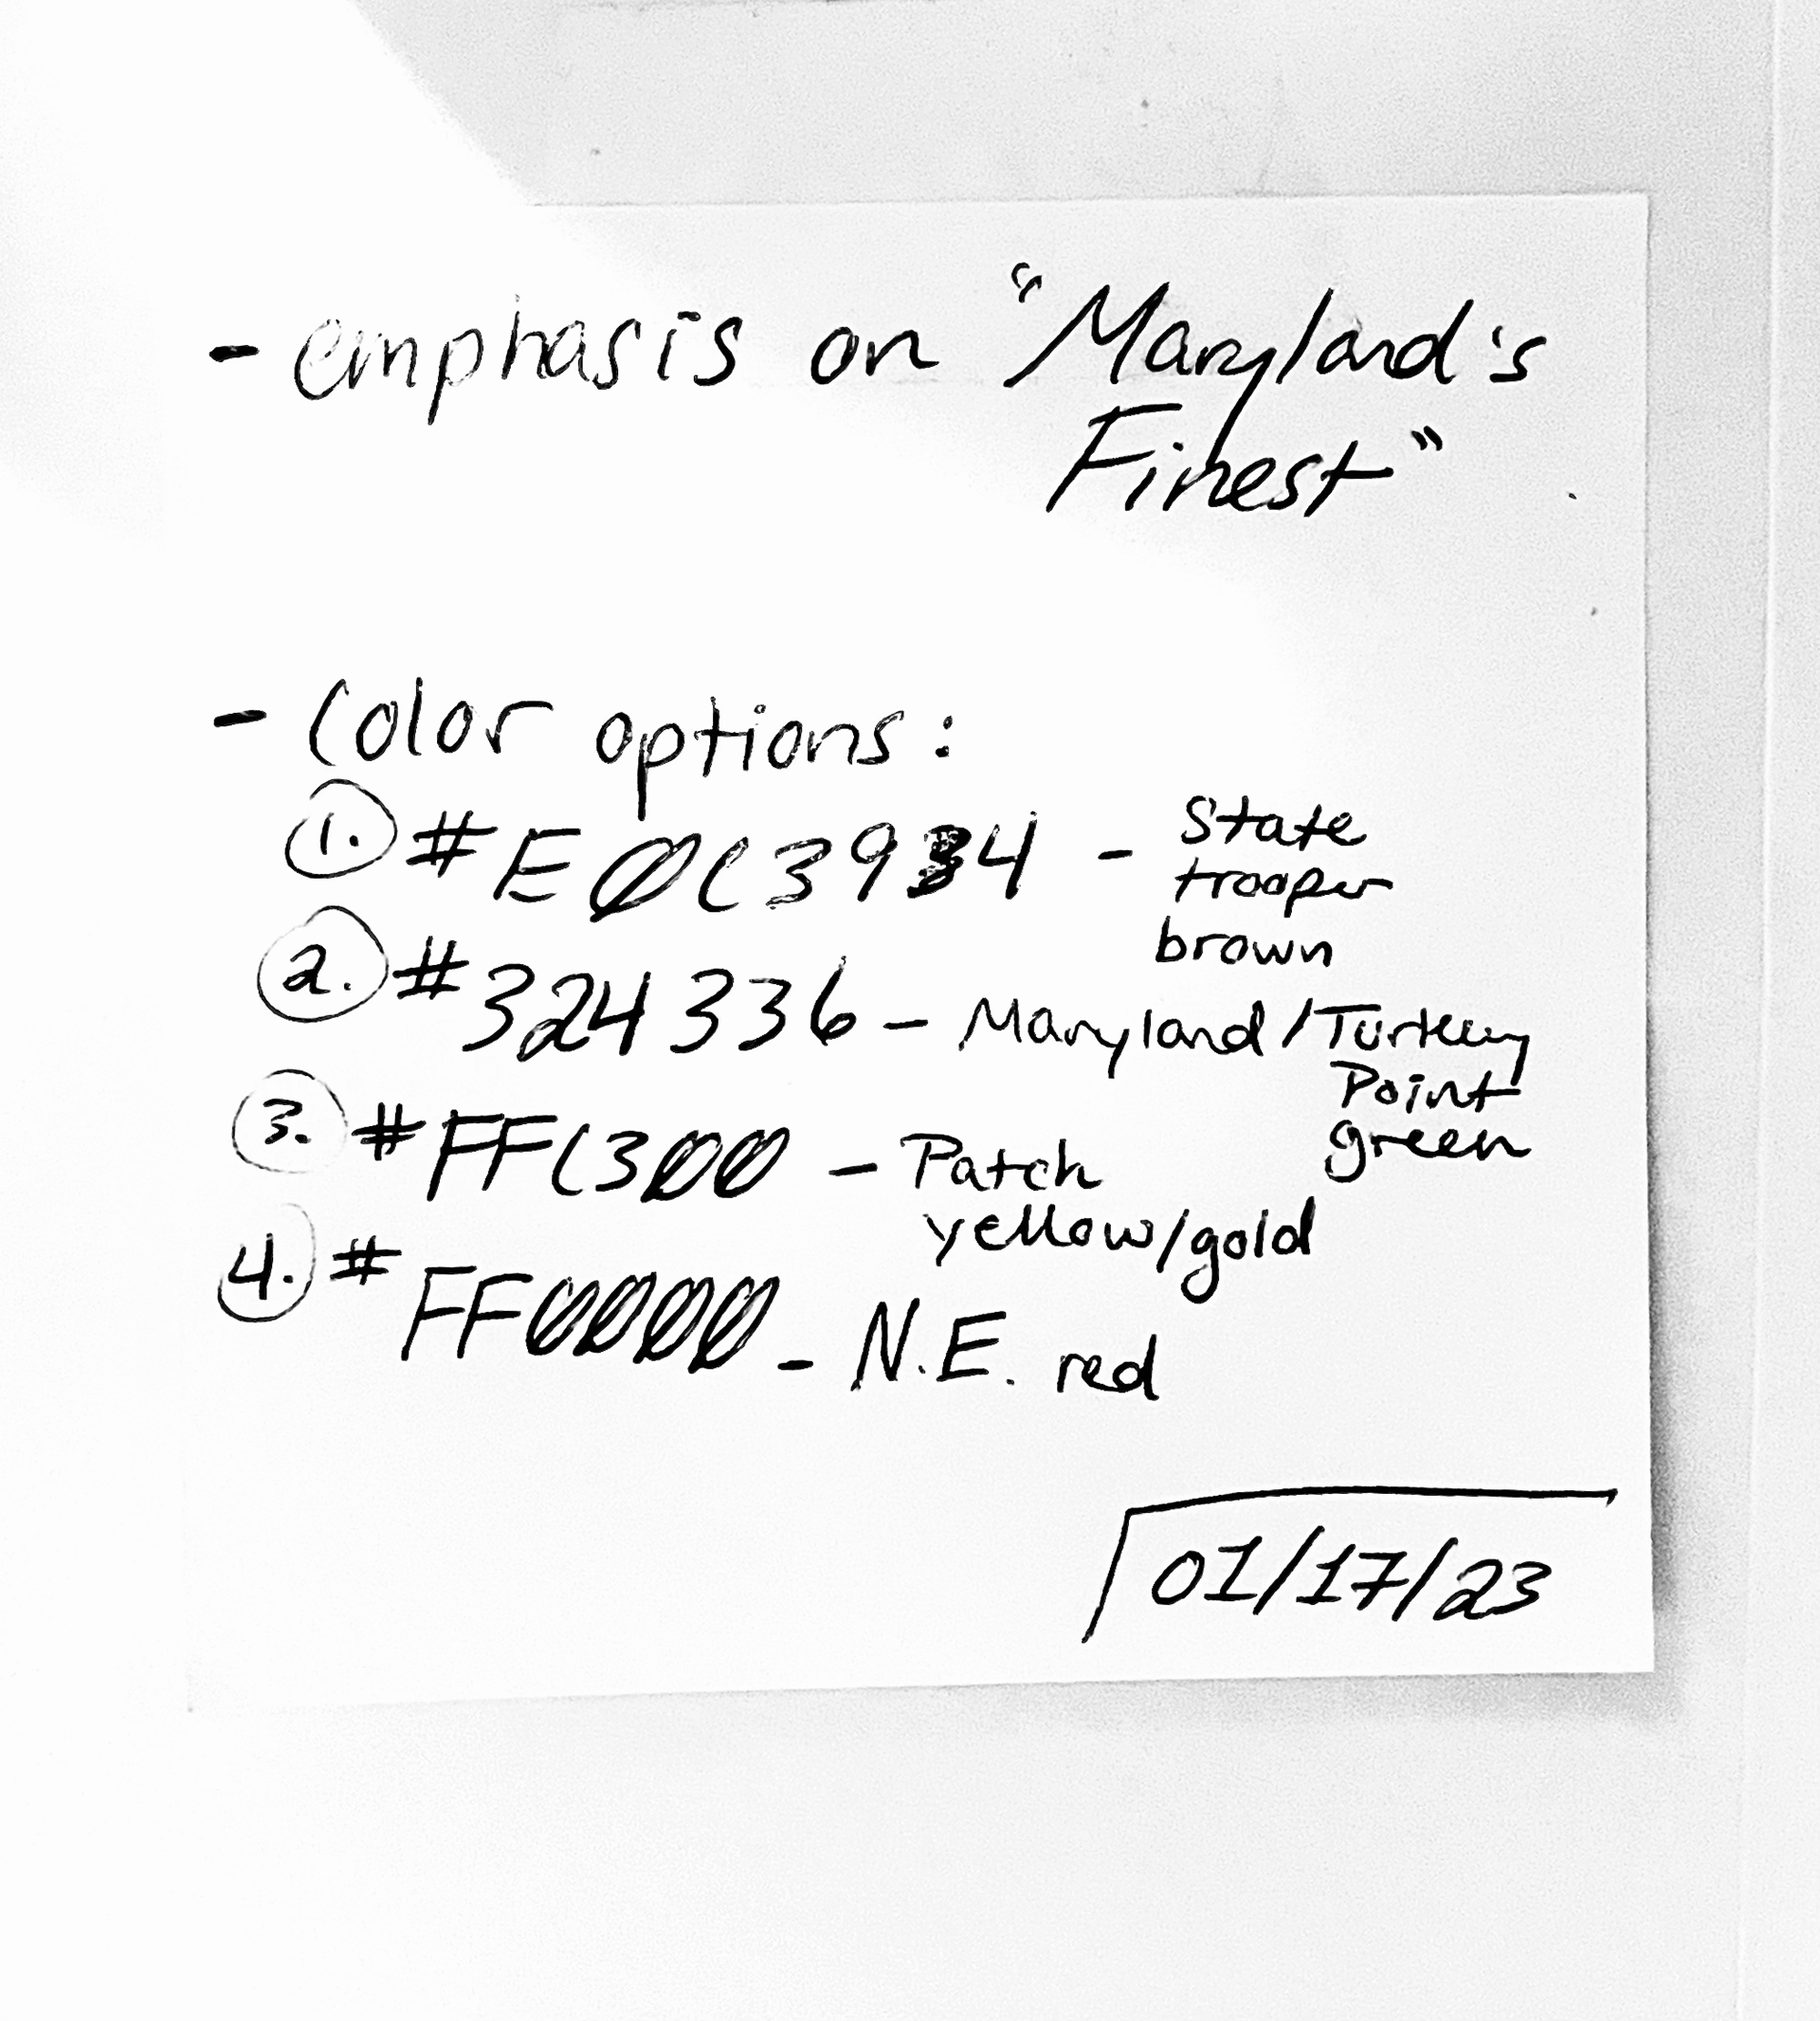 - emphasis on "Maryland's
Finest"
- Color options:
1. #E0C3934 - State
trooper
brown
2. #324336 - Maryland/Turkey
Point
green
3. #FFC300 - Patch
yellow/gold
4. #FF0000 - N.E. red
01/17/23